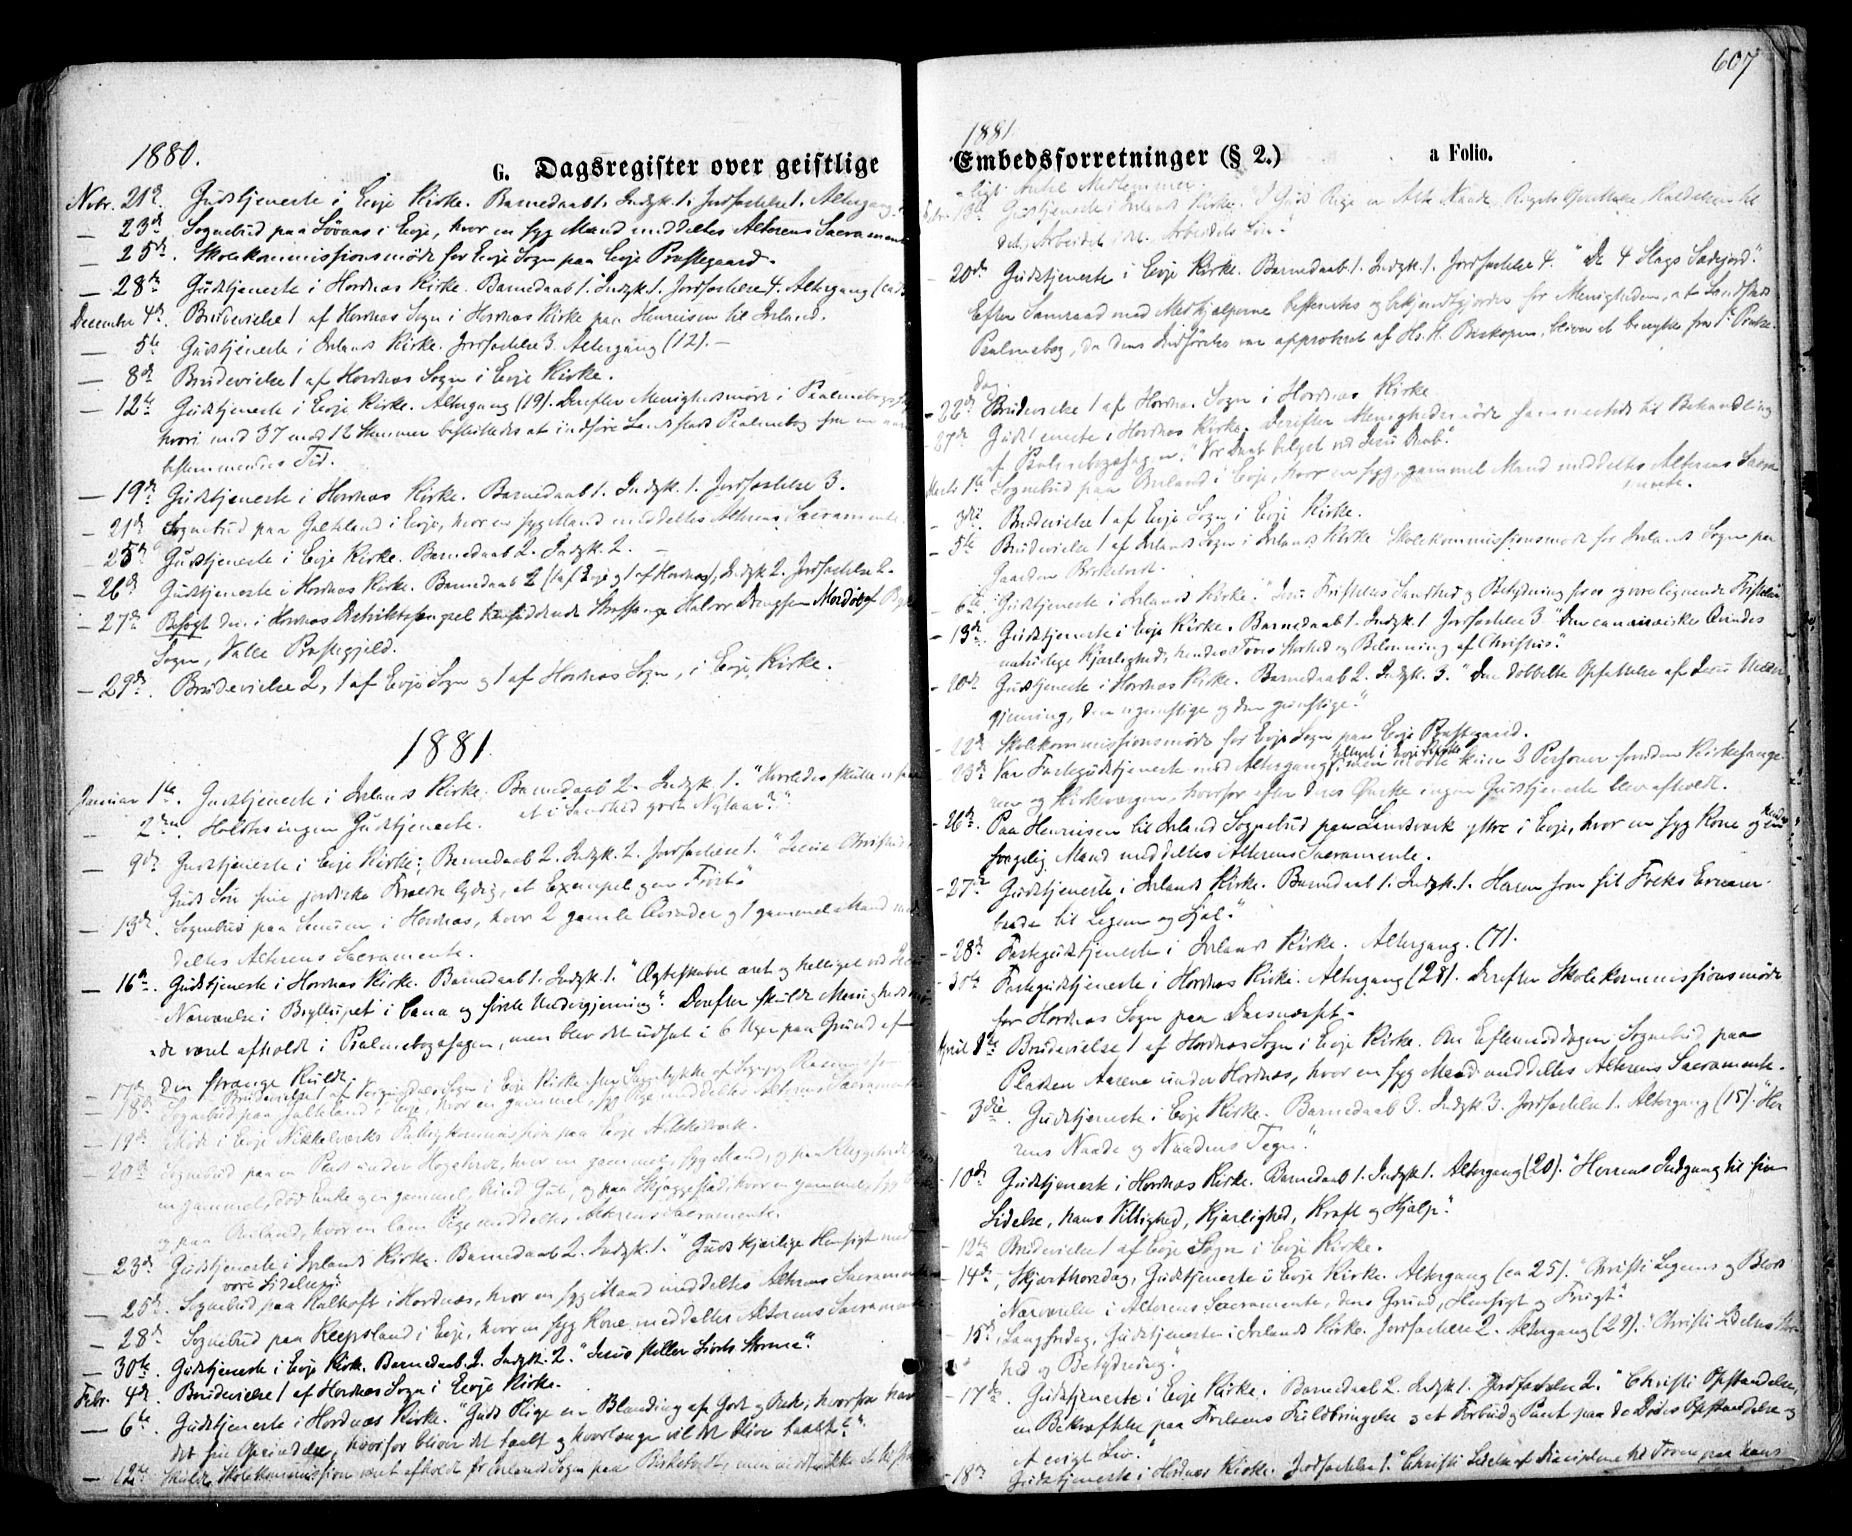 1880.
G. Dagsregister over geistlige
Novbr. 21de. Gudstjeneste i Evje Kirke. Barnedaab 1. Indgk. 1. Jordfæstelse 1. Altergang
— 23de. Sognebud paa i Evje, hvor en syg Mand meddeltes Alterens Sacramente
— 25de. Skolekommissionsmøde for Evje Sogn paa Evje Præstegaard.
— 28de. Gudstjeneste i Hornnæs Kirke. Barnedaab 1. Indgk. 1. Jordfæstelse 4. Altergang
December 4de. Brudevielse 1 af Hornnæs Sogn i Hornnæs Kirke paa Henreisen til Iveland.
— 5te. Gudstjeneste i Ivelands Kirke. Jordfæstelse 3. Altergang (12). —
— 8de. Brudevielse 1 af Hornnæs Sogn i Evje Kirke.
— 12te. Gudstjeneste i Evje Kirke. Altergang (19). Derefter Menighedsmøde i Psalmebogssagen
hvori med 37 mod 12 Stemmer besluttedes at indføre Landstads Psalmebog fra en
bestemmendes Tid.
— 19de. Gudstjeneste i Hornnæs Kirke. Barnedaab 1. Indgk. 1. Jordfæstelse 3.
— 21de. Sognebud paa i Evje, hvor en syg Mand meddeltes Alterens Sacramente.
25de. Gudstjeneste i Evje Kirke. Barnedaab 2. Indgk. 2. —
— 26de. Gudstjeneste i Hornnæs Kirke. Barnedaab 2 (1 af Evje og 1 af Hornnæs), Indgk. 2. Jordfæstelse 2.
— 27de. Besøgt den i Hornnæs Distriktsfængsel hensiddende Halvor
Sogn, Valle Præstegjeld.
— 29de. Brudevielse 2, 1 af Evje Sogn og 1 af Hornnæs Sogn, i Evje Kirke.
1881.
Januar 1te. Gudstjeneste i Ivelands Kirke. Barnedaab 2. Indgk. 1. "Hvorledes skulle vi faa
et i Sandhed godt Nytaar?"
— 2den. Holdtes ingen Gudstjeneste.
— 9de. Gudstjeneste i Evje Kirke; Barnedaab 2. Indgk. 2. Jordfæstelse 1. "Jesus Christus,
Guds Søn sine jordiske Forældre lydig, et Exempel
— 13de. Sognebud paa i Hornnæs, hvor 2 gamle Qvinder og 1 gammel Mand med-
deltes Alterens Sacramente.
— 16de. Gudstjeneste i Hornnæs Kirke. Barnedaab 1. Indgk. 1. "Ægteskabet æret og helliget ved Jesu
Nærværelse i Bryllupet i Cana og første Undergjerning". Derefter skulde Menighedsmø-
de været afholdt i Psalmebogssagen, men blev det udsat i 6 Uger paa Grund af
den strænge Kulde.
— 17de. Brudevielse 1 af Sogn i Evje Kirke
— 18de. Sognebud paa i Evje, hvor en gammel, syg Pige meddeltes Alterens Sacramente
— 19de. Møde i Evje Nikkelværks paa Evje
— 20de. Sognebud paa en Plads under hvor en gammel, syg Mand, og paa
en gammel, død Enke og en gammel, blind og paa Skjeggestad, hvor en gammel, syg
og paa hvor en lam Pige meddeltes Alterens Sacramente.
— 23de. Gudstjeneste i Ivelands Kirke. Barnedaab 2. Indgk. 1. "Guds kjærlige Hensigt med
vore Lidelser."
— 25de. Sognebud paa i Hornnæs, hvor en syg Mand meddeltes Alterens Sacramente
— 28de. Sognebud paa i Evje, hvor en syg Kone meddeltes Alterens Sacramente.
— 30te. Gudstjeneste i Evje Kirk. Barnedaab. 2. Indgk. 2. "Jesus stiller Livets Storme".
Febr. 4de. Brudevielse 1 af Hornnæs Sogn i Evje Kirke.
— 6te. Gudstjeneste i Hornnæs Kirke. "Guds Rige en Blanding af Godt og hvorfra har
det sin Oprindelse, hvorfor bliver det taalt og hvorlænge vil det blive taalt?"
— 12te. Skulde Skolekommission været afholdt for Ivelands Sogn paa Birketveit, men mødte ikke et

607
1881.
Embedsforretninger (§ 2.)
a Folio.
ligt Antal Medlemmer.
Febr. 13de. Gudstjeneste i Ivelands Kirke. "I Guds Rige er Alt Naade,
det, Arbeidet i det, Arbeidets Løn".
— 20de. Gudstjeneste i Evje Kirke. Barnedaab 1. Indgk. 1. Jordfæstelse 4. "De 4 Slags Sædejord".
Efter Samraad med Medhjælperne og bekjendtgjordes for Menigheden, at Landstads
Psalmebog, da dens Indførelse var approberet af Hs. H. Biskopen, bliver at benytte fra 1ste Pintse-
dag.
— 22de. Brudevielse 1 af Hornnæs Sogn i Hornnæs Kirke
27de. Gudstjeneste i Hornnæs Kirke. Derefter Menighedsmøde til Behandling
af Psalmebogssagen. "Vor Daab belyst ved Jesu Daab".
Marts 1te. Sognebud paa i Evje, hvor en syg, gammel Mand meddeltes Alterens Sacra-
mente.
— 3die. Brudevielse 1 af Evje Sogn i Evje Kirke.
— 5te. Brudevielse 1 af Ivelands Sogn i Ivelands Kirke. Skolekommissionsmøde for Ivelands Sogn paa
Gaarden Birketveit.
— 6te. Gudstjeneste i Ivelands Kirke. "Jesu Fristelses Sandhed og Betydning for os og vore lignende Fristelser
— 13de. Gudstjeneste i Evje Kirke. Barnedaab 1. Indgk. 1 Jordfæstelse 3 "Den cananæiske Qvindes
naturlige Kjærlighed, hendes Troes Storhed og Belønning af Christus".
— 20de. Gudstjeneste i Hornnæs Kirke. Barnedaab 2. Indgk. 3. "Den dobbelte Opfattelse af Jesu Under-
gjerning, den ugunstige og den gunstige".
— 22de. Skolekommissionsmøde for Evje Sogn paa Evje Præstegaard.
— 23de. Var Fastegudstjeneste med Altergang i Evje Kirke, men mødte kun 3 Personer foruden Kirkesange-
ren og Kirkeværgen, hvorfor efter deres Ønske ingen Gudstjeneste blev afholdt.
— 26de. Paa Henreisen til Iveland Sognebud paa yttre i Evje, hvor en syg Kone og en
svagelig Mand meddeltes Alterens Sacramente.
— 27de. Gudstjeneste i Ivelands Kirke. Barnedaab 1. Indgk. 1. Herren som sit Folks Ernærer
baade til Legem og Sjæl".
— 28de. Fastegudstjeneste i Ivelands Kirke. Altergang. (7).
— 30te. Fastegudstjeneste i Hornnæs Kirke. Altergang (28). Derefter Skolekommissionsmøde
for Hornnæs Sogn paa
April 1te. Brudevielse 1 af Hornnæs Sogn i Evje Kirke. Om Eftermiddagen Sognebud paa
Pladsen under Hornnæs, hvor en syg Mand meddeltes Alterens Sacramente.
— 3die. Gudstjeneste i Evje Kirke. Barnedaab 3. Indgk. 3. Jordfæstelse 1. Altergang (15). "Her-
rens Naade og Naadens Tegn".
— 10de. Gudstjeneste i Hornnæs Kirke. Barnedaab 1. Indgk. 1. Altergang (20). "Herrens Indgang til sin
Lidelse, hans Villighed, Kjærlighed, Kraft og Hjælp".
— 12te. Brudevielse 1 af Evje Sogn i Evje Kirke.
— 14de, Skjærthorsdag, Gudstjeneste i Evje Kirke. Altergang (ca 25). "Christi Legems og Blods
Nærværelse i Alterens Sacramente, dens Grund, Hensigt og Frugt".
— 15de, Langfredag, Gudstjeneste i Ivelands Kirke. Jordfæstelse 2. Altergang (29). "Christi Lidelses Stor-
hed og Betydning".
— 17de. Gudstjeneste i Evje Kirke. Barnedaab 2. Indgk. 1. Jordfæstelse 2. "Christi Opstandelse,
en Bekræftelse paa Forløsnens Fuldbringelse og et Forbud og Pant paa de Dødes Opstandelse og
et evigt Liv."
— 18de. Gudstjeneste i Hornnæs Kirke. Jordfæstelse 1. "Christi af Disciplene til Troen paa hans